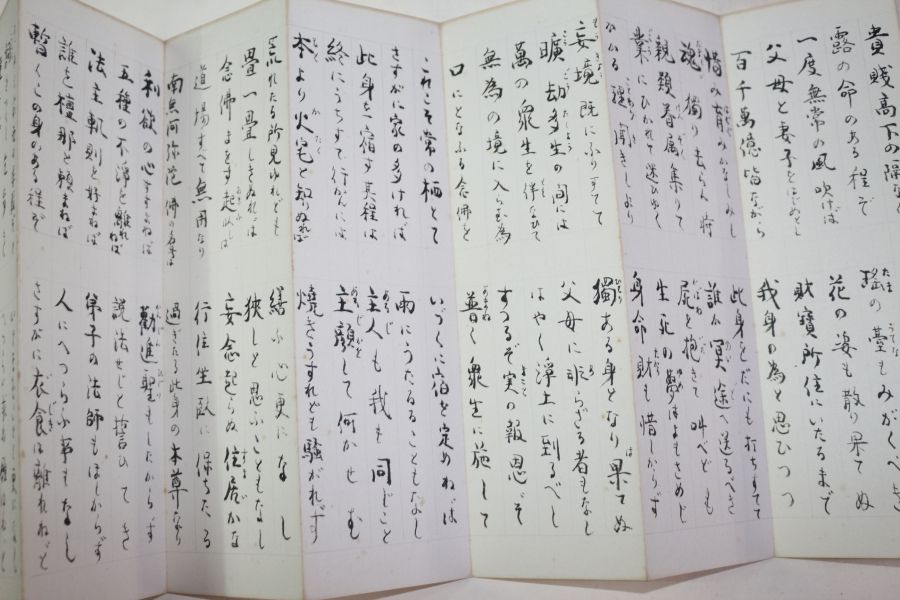 貴賤高下の隔なく
露の命のある程ぞ 瑤の臺もみがくべき
一度無常の風吹けば 花の姿も散り果てぬ
父母と妻子をはじめとし 財寶所住にいたるまで
百千萬億皆ながら 我身の為と思ひつつ
惜み育みかなしみし 此身をだにも打ちすてて
魂獨り去らん時 誰か冥途へ送るべき
親類眷属集りて 屍を抱きて叫べども
業にひかれて迷ひゆく 生死の夢はよもさめじ
かかる理聞きしより 身命財も惜しからず
妄境既にふりすてて 獨ある身となり果てぬ
曠劫多生の間には 父母に非らざる者もなし
萬の衆生を伴なひて はやく浄土に到るべし
無為の境に入らむ為 すつるぞ実の報恩ぞ
口にとなふる念佛を 普く衆生に施して
これこそ常の栖とて いづくに宿を定めねば
さすがに家の多ければ 雨にうたるることもなし
此身を一宿す其程は 主人も我も同じこと
終にうちすて行かんには 主顔して何かせむ
本より火宅と知ぬれば 焼きうすれども騒がれず
荒れたる所見ゆれども 繕ふ心更になし
畳一畳しきぬれば 狭しと思ふこともなし
念佛まうす起ふしは 妄念起らぬ住居かな
道場すべて無用なり 行住坐臥に保ちたる
南無阿弥陀佛の名号は 過ぎたる此身の本尊なり
利欲の心すすまねば 勸進聖もしたからず
五種の不浄を離れねば 説法せじと誓ひてき
法主軌則を好まねば 弟子の法師もほしからず
誰を檀那と頼まねば 人にへつらふ事もなし
暫くこの身のある程ぞ さすがに衣食は離れねど